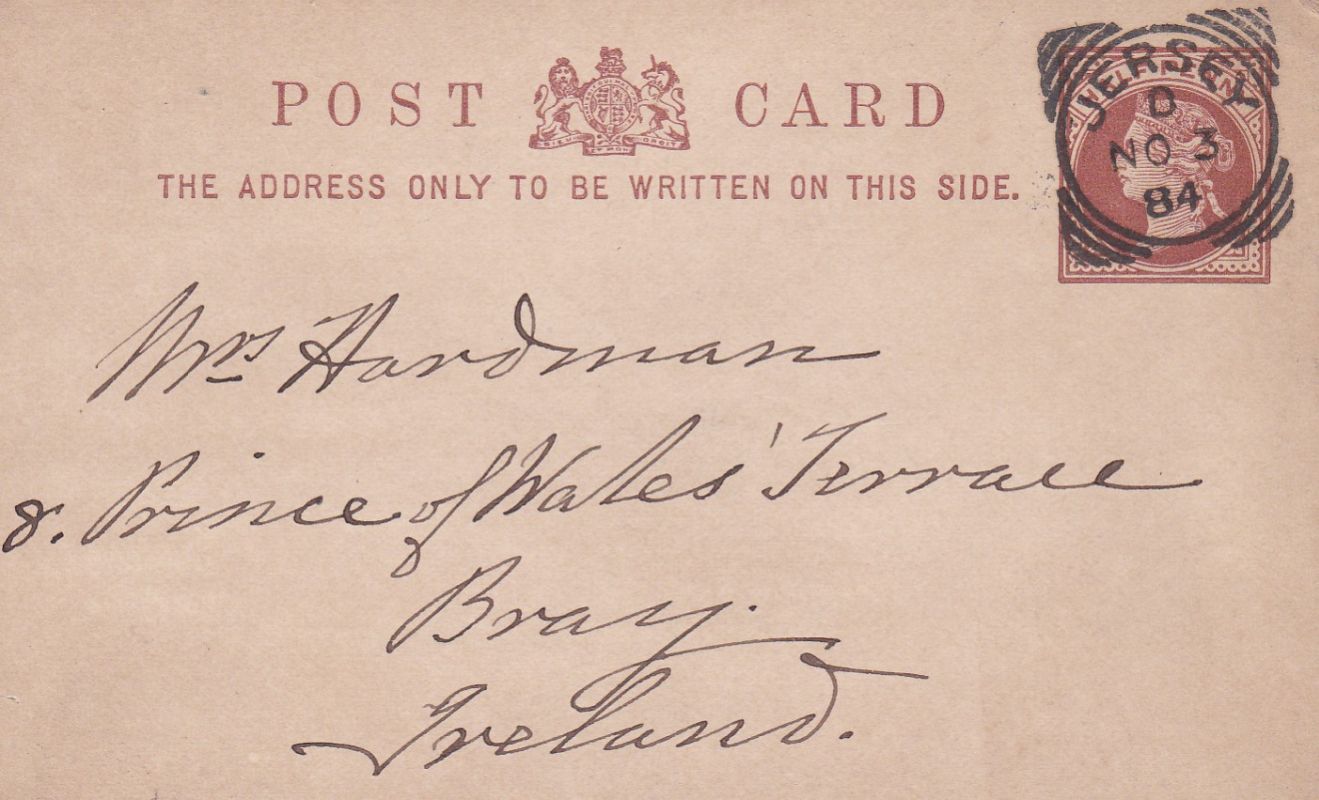 POST CARD
THE ADDRESS ONLY TO BE WRITTEN ON THIS SIDE.
JERSEY
D
NO 3
84
Mrs Hardman
8. Prince of Wales' Terrace
Bray.
Ireland.